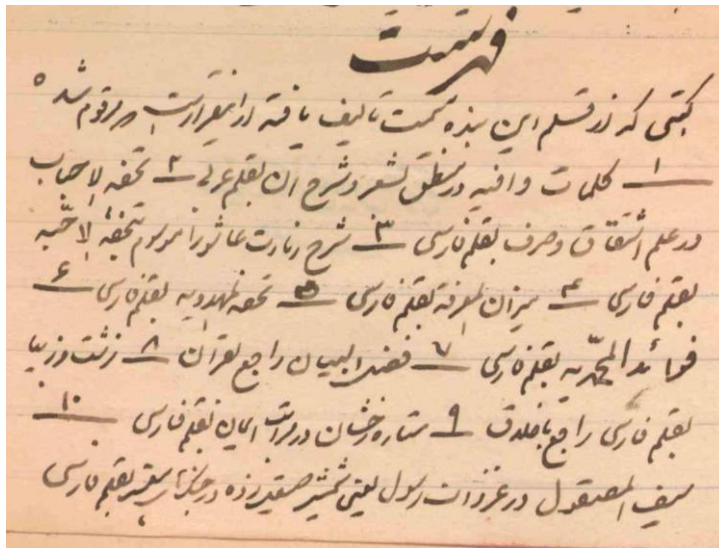 فهرست
کتبی که از قلم این بنده سمت تالیف یافته از اینقرار است مرقوم شده
۱ کلمات وافیه در منطق شعر و شرح آن بقلم عربی ۲ تحفه الاحباب
در علم اشتقاق و صرف بقلم فارسی ۳ شرح زیارت عاشورا موسوم بتحفة الاحبه
بقلم فارسی ۴ میزان المعرفة بقلم فارسی ۵ تحفه مهدویه بقلم فارسی ۶
فوائد المحمدیه بقلم فارسی ۷ فضل البیان راجع بقرآن ۸ زشت و زیبا
بقلم فارسی راجع باخلاق ۹ ستاره درخشان در مراتب ایمان بقلم فارسی ۱۰
سیف المصقول در غزوات رسول یعنی شمشیر صیقل زده در جنگهای پیغمبر بقلم فارسی